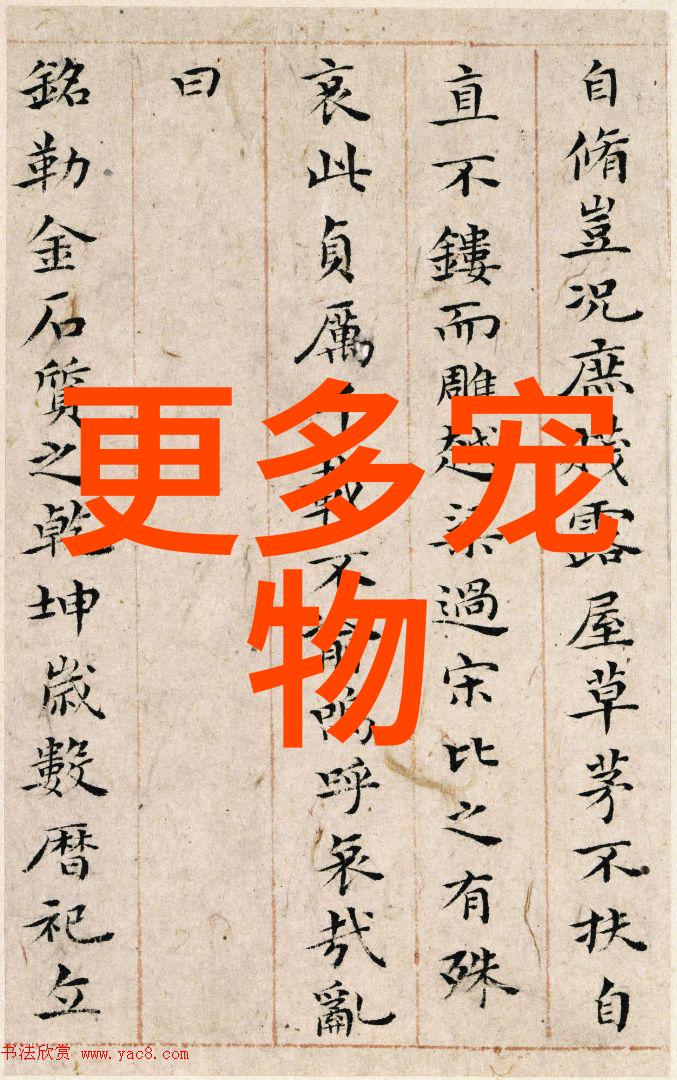 自脩豈況庶賤露屋草茅不扶自
直不鏤而雕越梁過宋比之有殊
哀此貞厲千載不渝嗚呼哀哉亂
曰
銘勒金石質之乾坤歲數暦祀立
更多宠
物
书法欣赏 www.yac8.com